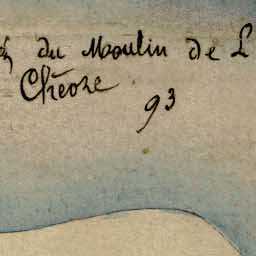 du Moulin de L
Chéore
93